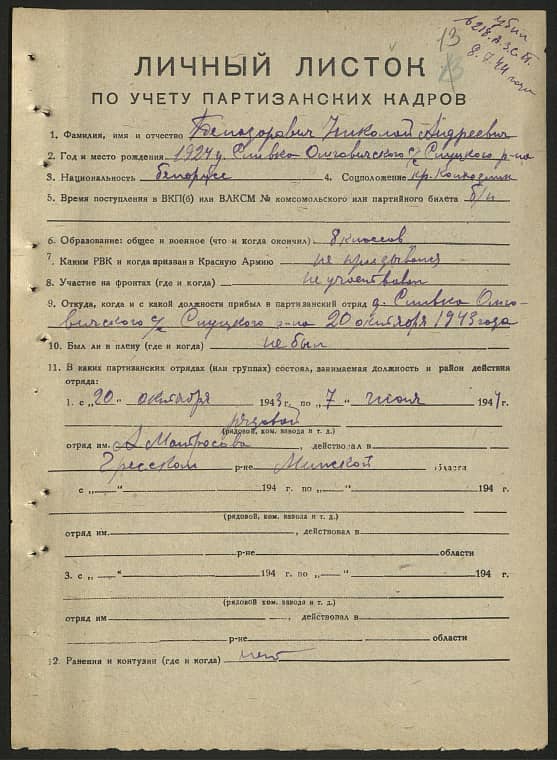 13
убыл
в 218 А.З.С.П.
8.7.44 года
ЛИЧНЫЙ ЛИСТОК
ПО УЧЕТУ ПАРТИЗАНСКИХ КАДРОВ
1. Фамилия, имя и отчество Николай Андреевич
2. Год и место рождения 1924 г. с/с Слуцкого р-на
3. Национальность белорус 4. Соцположение кр. колхозник
5. Время поступления в ВКП(б) или ВЛКСМ № комсомольского или партийного билета б/п
6. Образование: общее и военное (что и когда окончил) 8 классов
7. Каким РВК и когда призван в Красную Армию не призывался
8. Участие на фронтах (где и когда) не участвовал
9. Откуда, когда и с какой должности прибыл в партизанский отряд д.
с/с Слуцкого р-на 20 октября 1943 года
10. Был ли в плену (где и когда) не был
11. В каких партизанских отрядах (или группах) состоял, занимаемая должность и район действия
отряда:
1. с „20“ октября 1943 г. по „7“ июля 1944 г.
рядовой
(рядовой, ком. взвода и т. д.)
отряд им. А Матросова, действовал в
Гресском р-не Минской области
с „ “ 194 г. по „ “ 194 г.
(рядовой, ком. взвода и т. д.)
отряд им. , действовал в
р-не области
3. с „ “ 194 г. по „ “ 194 г.
(рядовой, ком. взвода и т. д.)
отряд им , действовал в
р-не области
12. Ранения и контузии (где и когда) нет